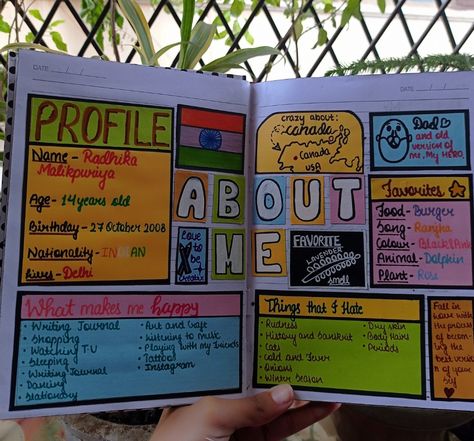 DATE
PROFILE
Name - Radhika
Malikpuriya
Age - 14 years old
Birthday - 27 October 2008
Nationality - INDIAN
Lives - Delhi
What makes me happy
• Writing Journal
• Shopping
• Watching TV
• Sleeping
• Writing Journal
• Dancing
• Stationary
• Art and Craft
• Listening to music
• Playing with my friends
• Tattoo
• Instagram
ABOUT
ME
Love
to be
DATE
crazy about:
Canada
Canada
USA
Dad
and old
version of
me, My HERO
FAVORITE
LAVENDER
smell
Favourites
Food - Burger
Song - Ranjha
Colour - Black & Pink
Animal - Dolphin
Plant - Rose
Things that I Hate
• Rudness
• History and Sanskrit
• Cats
• Cold and Fever
• Onions
• Winter Season
• Dry skin
• Body Hairs
• Periods
Fall in
love with
the process
of becom
ing the
best versio
n of your
self